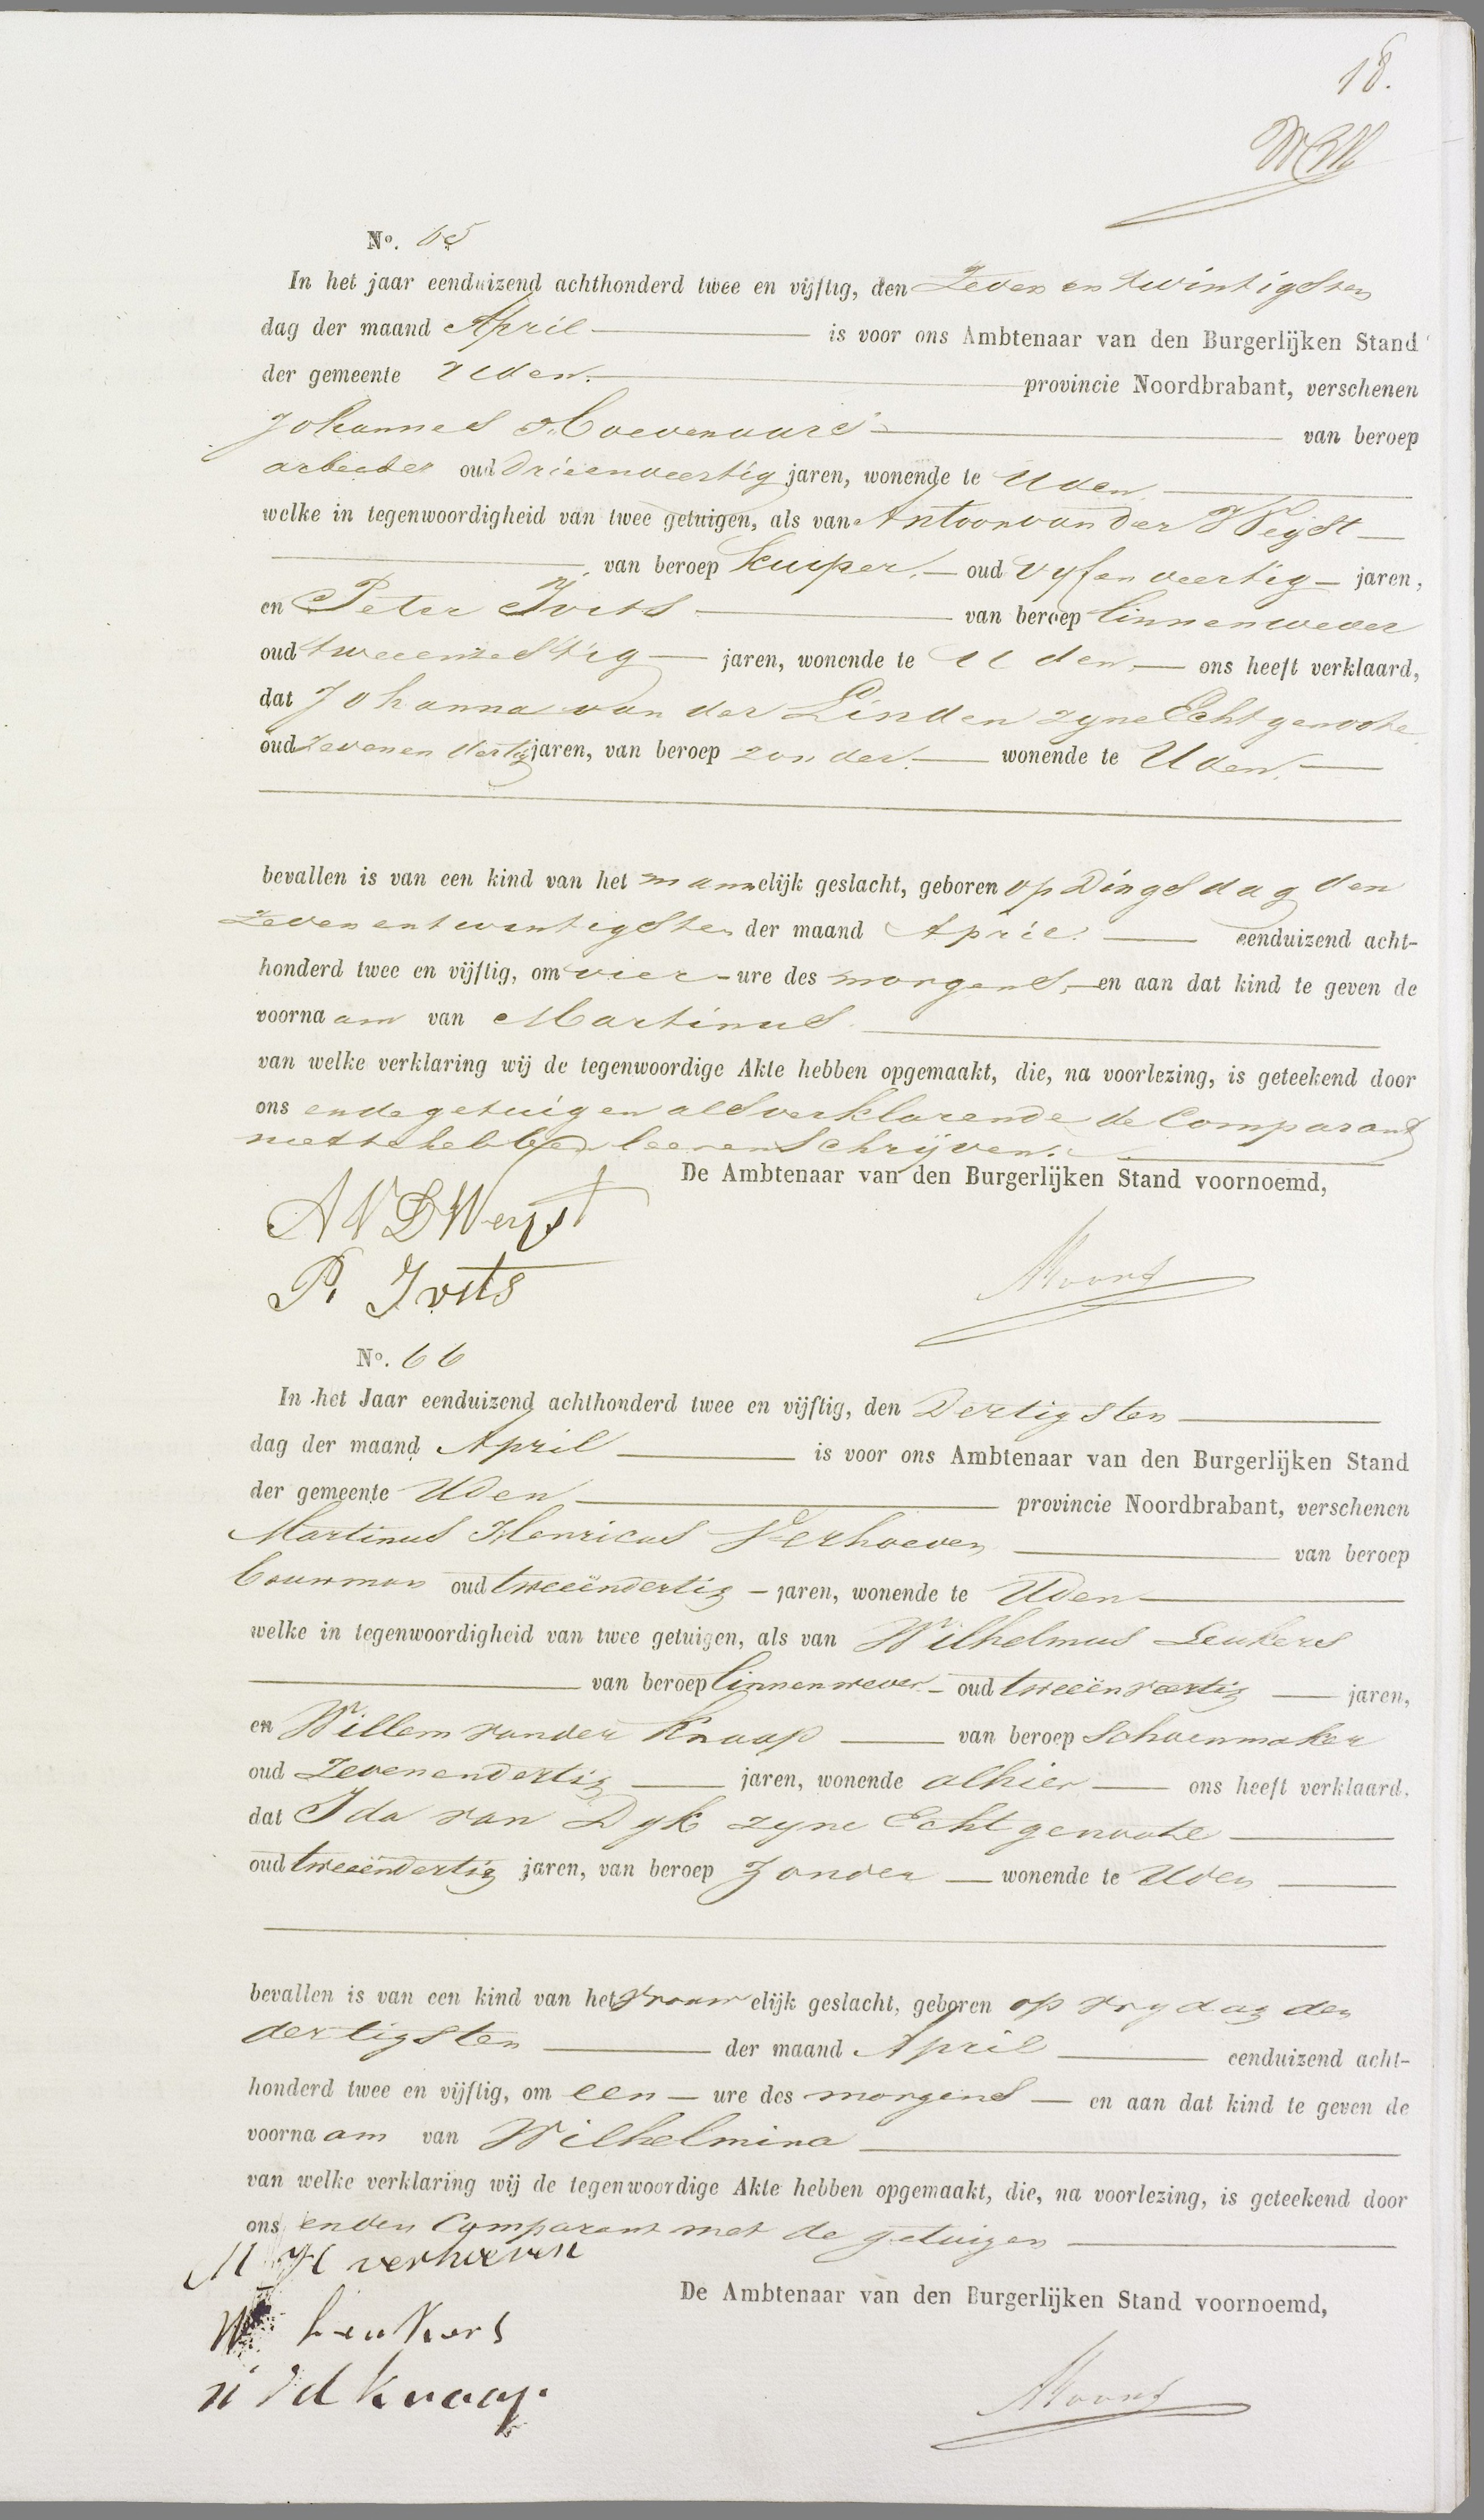 18.
No. 65
In het jaar eenduizend achthonderd twee en vijftig, den Zeven en twintigsten
dag der maand April is voor ons Ambtenaar van den Burgerlijken Stand
der gemeente Uden. provincie Noordbrabant, verschenen
Johannes Hoevenaars van beroep
arbeider oud Drieenveertig jaren, wonende te Uden
welke in tegenwoordigheid van twee getuigen, als van Antoon van der Weijst
van beroep kuiper. oud vyfenveertig jaren,
en Peter Jvits van beroep linnenwever
oud tweeenzestig jaren, wonende te Uden ons heeft verklaard,
dat Johanna van der Linden zyne Echtgenoote
oud zevenendertig jaren, van beroep zonder. wonende te Uden.
bevallen is van een kind van het mannelijk geslacht, geboren op Dingsdag den
Zevenentwintigsten der maand April eenduizend acht-
honderd twee en vijftig, om vier ure des morgens, en aan dat kind te geven de
voornaam van Martinus.
van welke verklaring wij de tegenwoordige Akte hebben opgemaakt, die, na voorlezing, is geteekend door
ons en de getuigen als verklarende de Comparant
niet te hebben leeren Schrijven.
De Ambtenaar van den Burgerlijken Stand voornoemd,
A V D Weyst
P. Jvits
No. 66
In het Jaar eenduizend achthonderd twee en vijftig, den Dertigsten
dag der maand April is voor ons Ambtenaar van den Burgerlijken Stand
der gemeente Uden provincie Noordbrabant, verschenen
Martinus Henricus Verhoeven van beroep
bouwman oud tweeëndertig jaren, wonende te Uden
welke in tegenwoordigheid van twee getuigen, als van Wilhelmus Leukers
van beroep linnenwever oud tweeënveertig jaren,
en Willem van der Knaap van beroep Schoenmaker
oud Zevenendertig jaren, wonende alhier ons heeft verklaard,
dat Ida van Dyk zyne Echtgenoote
oud tweeëndertig jaren, van beroep Zonder wonende te Uden
bevallen is van een kind van het vrouwelijk geslacht, geboren op vrydag den
dertigsten der maand April eenduizend acht-
honderd twee en vijftig, om een ure des morgens en aan dat kind te geven de
voornaam van Wilhelmina
van welke verklaring wij de tegenwoordige Akte hebben opgemaakt, die, na voorlezing, is geteekend door
ons en den Comparant met de getuigen
M H verhoeven
De Ambtenaar van den Burgerlijken Stand voornoemd,
W Leukers
vd Knaap